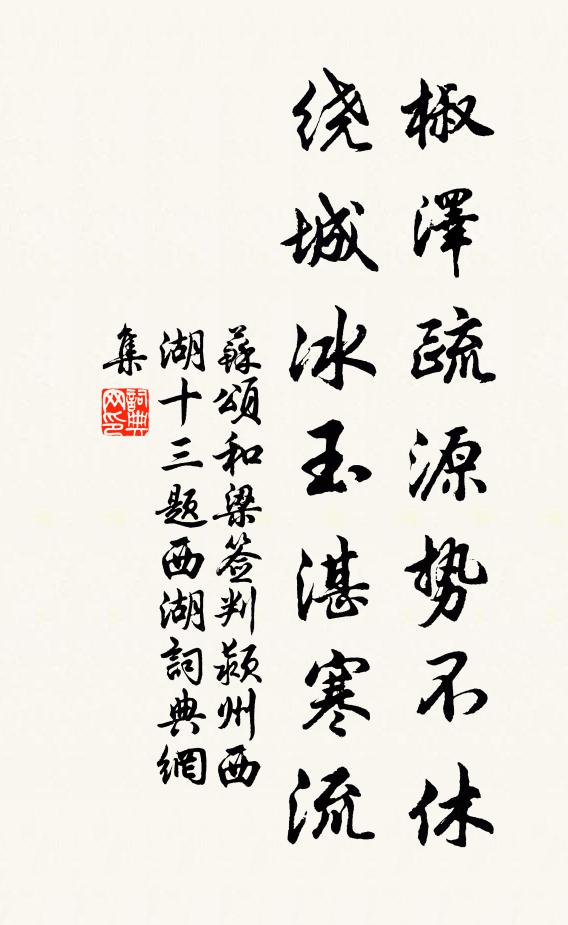 椒澤疏源势不休
绕城冰玉湛寒流
蘇頌和梁签判颍州西
湖十三题西湖詞典網
集
詞典
网印